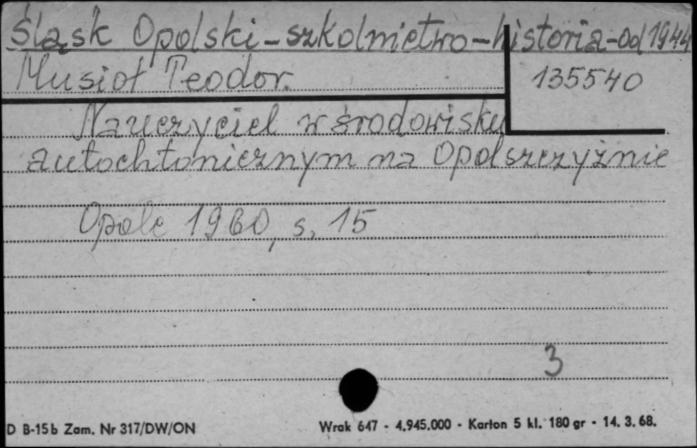 Śląsk Opolski - szkolnictwo - historia - od 1944
Musioł Teodor.
135540
Nauczyciel w środowisku
autochtonicznym na Opolszczyźnie
Opole 1960, s. 15
3
D B-15b Zam. Nr 317/DW/ON
Wrak 647 - 4.945.000 - Karton 5 kl. 180 gr - 14. 3. 68.